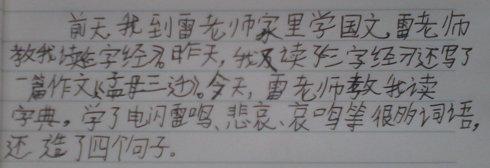 前天,我到雷老师家里学国文,雷老师
教我读三字经。昨天,我又读了三字经,还写了
一篇作文《孟母三迁》。今天,雷老师教我读
字典。学了电闪雷鸣、悲哀、哀鸣等很多词语,
还造了四个句子。